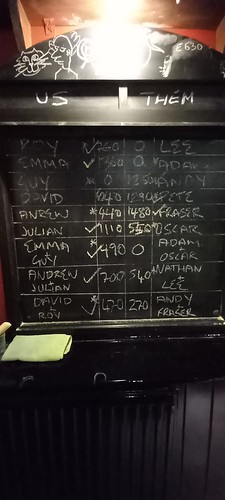 2630
US THEM
ROY ✓ 260 0 LEE
EMMA ✓ 1360 0 ADAM
GUY * 0 1350 ANDY
DAVID 1040 1290 PETE
ANREW * 440 1480 ✓ FRASER
JULIAN ✓ 1110 550 OSCAR
EMMA ADAM
GUY ✓ * 490 0 OSCAR
ANDREW NATHAN
JULIAN ✓ 700 540 + LEE
DAVID ANDY
+ ROY ✓ * 470 270 FRAZER